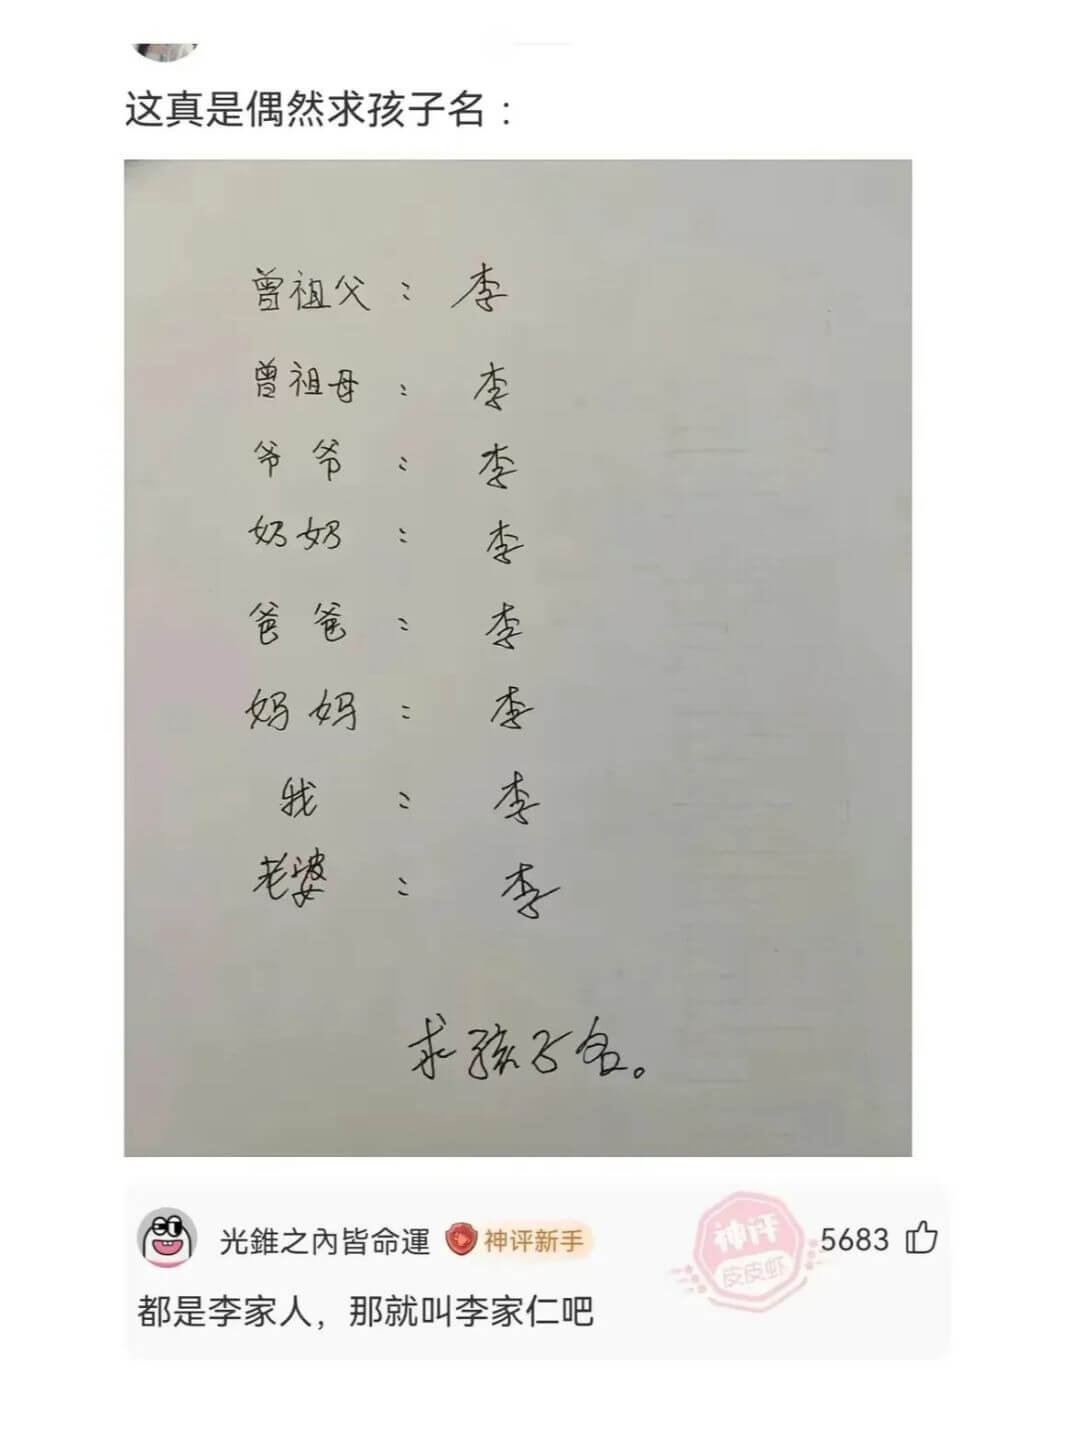 这真是偶然求孩子名：
曾祖父：李
曾祖母：李
爷爷：李
奶奶：李
爸爸：李
妈妈：李
我：李
老婆：李
求孩子名。
光錐之內皆命運 神评新手 神评 皮皮虾 5683
都是李家人，那就叫李家仁吧